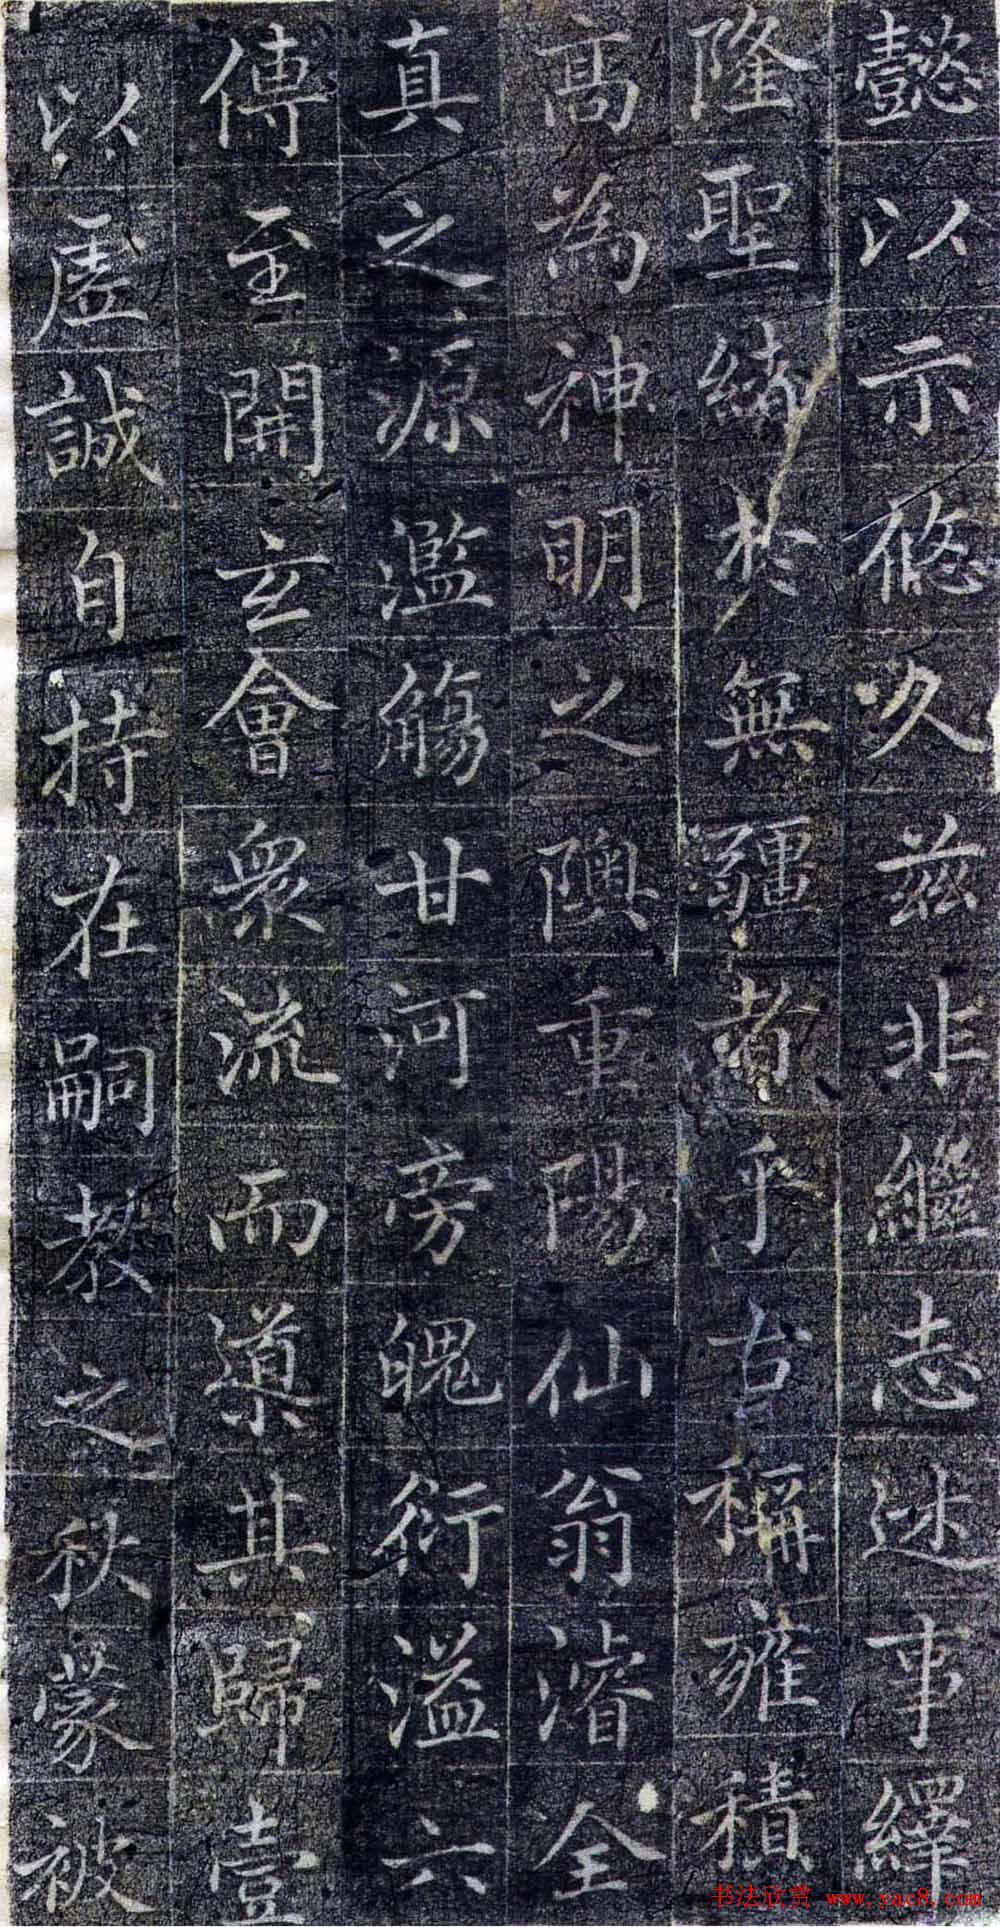 懿以示悠久茲非繼志述事繹
隆聖緒於無疆者乎古稱雍積
高為神明之隩重陽仙翁濬全
真之源濫觴甘河旁魄衍溢六
傳至開玄會眾流而導其歸壹
以虛誠自持在嗣教之秋蒙被
书法欣赏 www.yac8.com